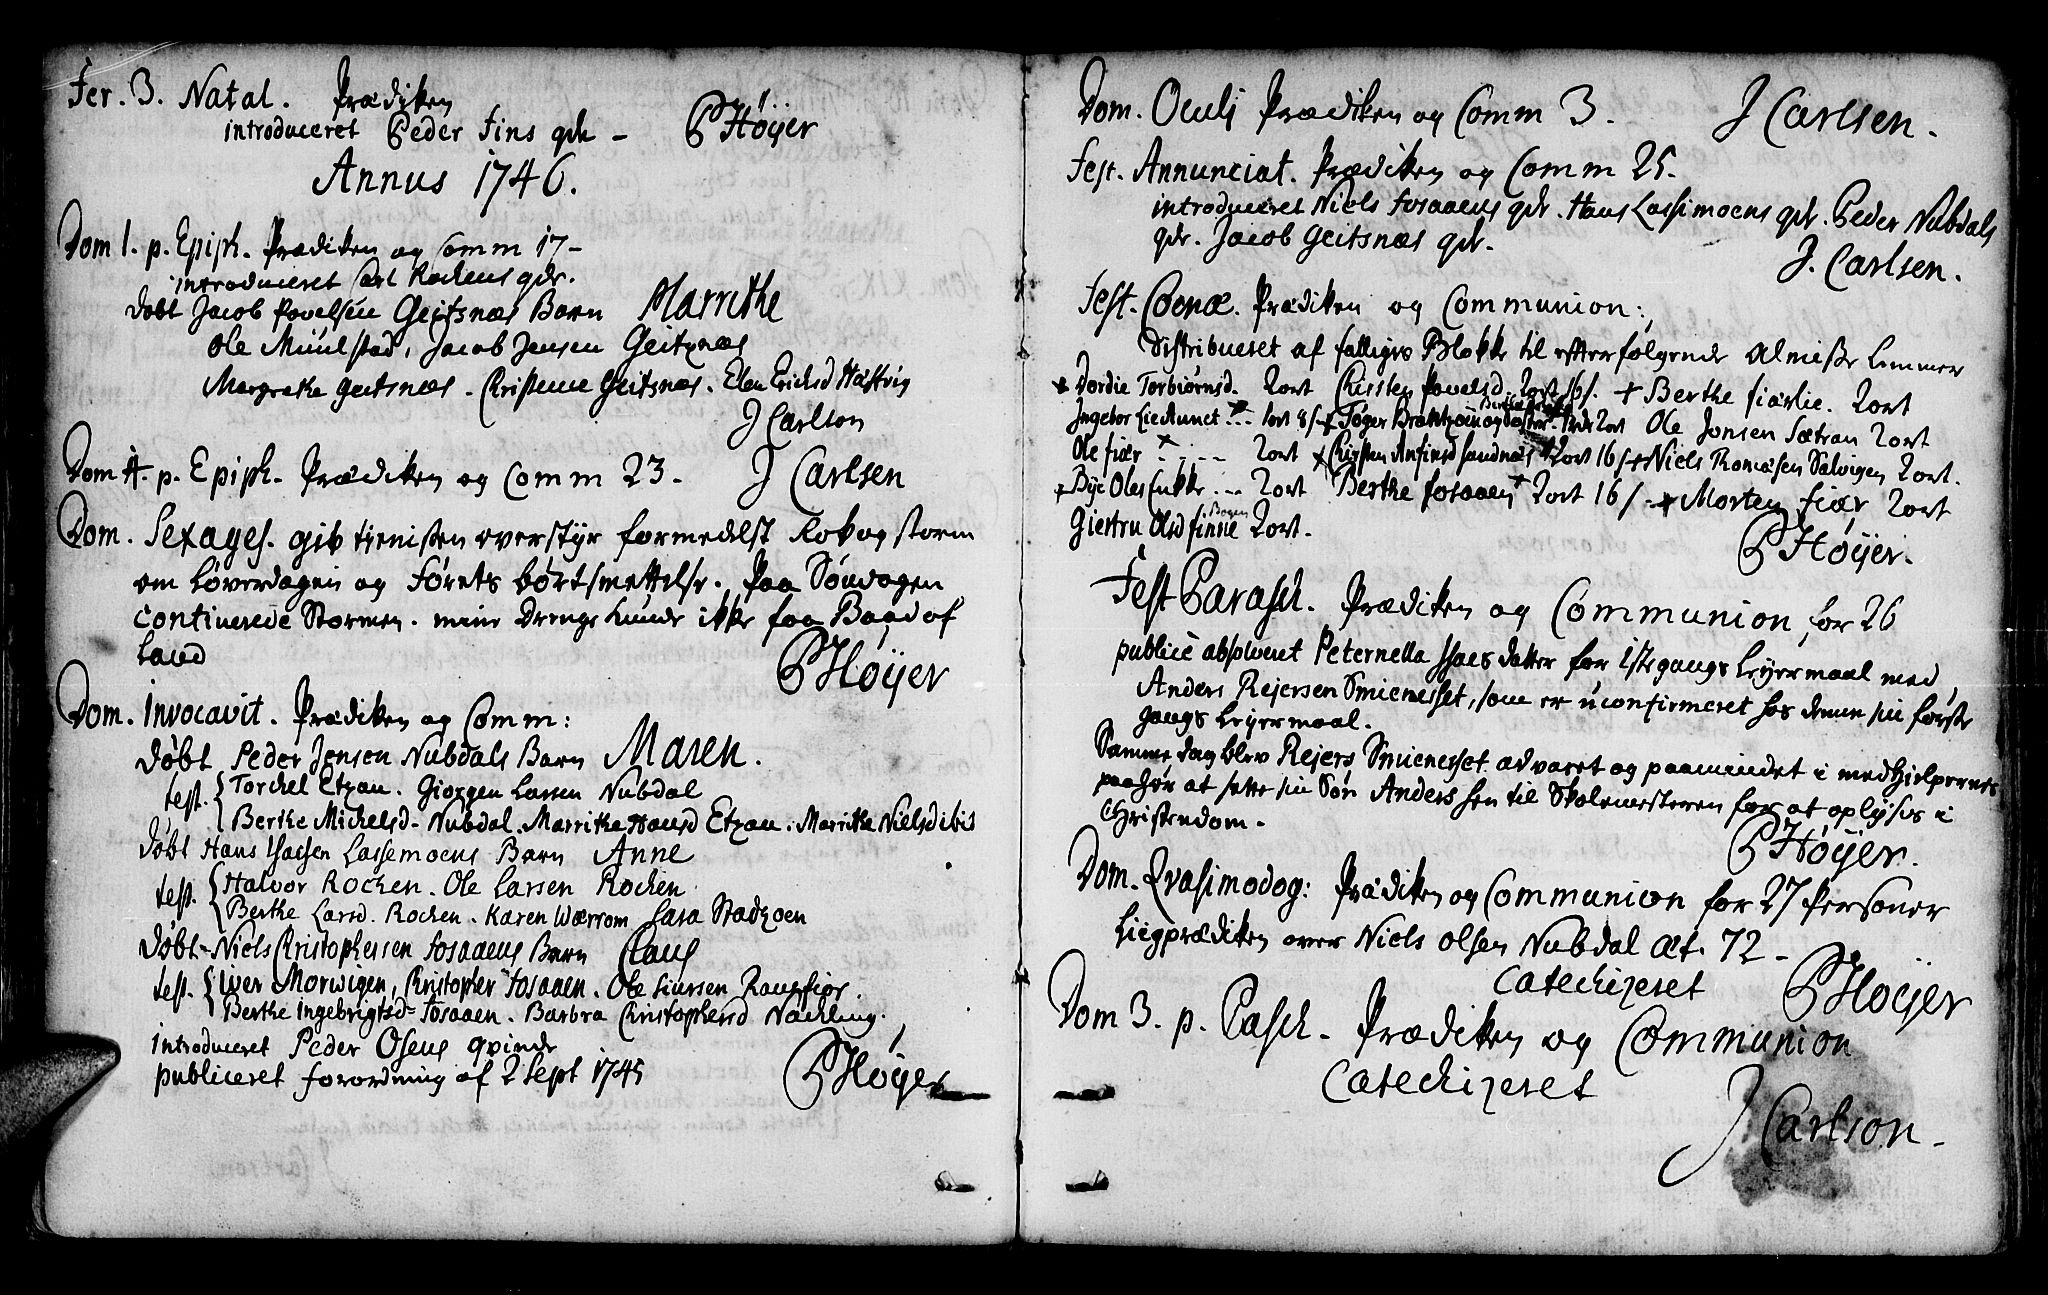 Fer. 3. Natal. Prædiken
introduceret Peder Fins qde – PHöyer
Annus 1746.
Dom 1. p. Epiph. Prædiken og Comm 17–
introduceret Carl Rochens qde.
døbt Jacob Povelsen Geitsnæs Barn Marrithe
Ole Müülstad, Jacob Jensen Geitznæs
Margrethe Geitsnæs. Christenne Geitsnæs. Elen Ericksd Hastvig
J Carlson
Dom 4. p. Epiph. Prædiken og Comm 23. J Carlsen
Dom. Sexages. gik tienisten overstyr formedelst Rokog storm
om Løverdagen og Førets bortsmettelse. Paa Søndagen
continerede Stormen. mine Drenge kunde ikke faa Baad af
Land PHöyer
Dom. Invocavit. Prædiken og Comm:
døbt Peder Jensen Nubdals Barn Maren.
test. Torckel Etzan. Giørgen Larsen Nubdal
Berthe Michelsd. Nubdal. Marrithe Hansd Etzan. Marrithe Nielsd ibid
døbt Hans Isacsen Lassemoens Barn Anne
test. Halvor Rochen. Ole Larsen Rochen
Berthe Larsd. Rochen. Karen Wærrom Sara Stadzoen
døbt Niels Christophersen Fosaaens Barn Claus
test. Iver Morwigen, Christopher Fosaaen. Ole Siursen
Berthe Ingebrigtsd Fosaaen. Barbra Christophersd Nachling.
introduceret Peder Osens qvinde
publiceret forordning af 2 Sept 1745 PHöyer
Dom. Oculi Prædiken og Comm 3. J Carlsen.
Fest. Annunciat. Prædiken og Comm 25.
introduceret Niels Fosaaens qde. Hans Lassimoens qde. Peder Nubdals
qde. Jacob Geitsnæs qde.
J. Carlsen.
Fest. Coenæ. Prædiken og Communion:
Distribueret af fattiges Blokke til efterfølgende Almisse Lemmer
+ Dordie Torbiørnsd. 2ort Chirsten Povelsd. 2ort 16/. + Berthe Fiærlie. 2ort
Ingebor 1ort 8/ + Tøger 2ort Ole Jonsen Sætran 2ort
Ole Fiær + 2ort + Chirsten Anfinsd Sandnæs 2ort 16/ + Niels Thomæsen Salvigen 2ort.
+ Byc Oles Enkke 2ort Berthe Fosaaen + 2ort 16/ + Morten Fiær 2ort
Giertru Olsd Finne Bogen 2ort.
PHöyer.
Fest Parasch. Prædiken og Communion for 26
publicè absolveret Peternella Isaes datter for 1stegangs Leyermaal med
Anders Rejersen Smienesset, som er uconfirmeret hos denne sin første
gangs Leyermaal.
Samme dag blev Rejers Smienesset advaret og paamindet i medhielpernes
paahør at sette sin Søn Anders hen til Skolemesteren for at oplyses i
Christendom.
PHöyer.
Dom. Qvasimodog: Prædiken og Communion for 27 Personer
Liigprædiken over Niels Olsen Nubdal æt. 72.
Catechizeret PHöyer
Dom 3. p. Pasch. Prædiken og Communion
Catechizeret
J Carlson.